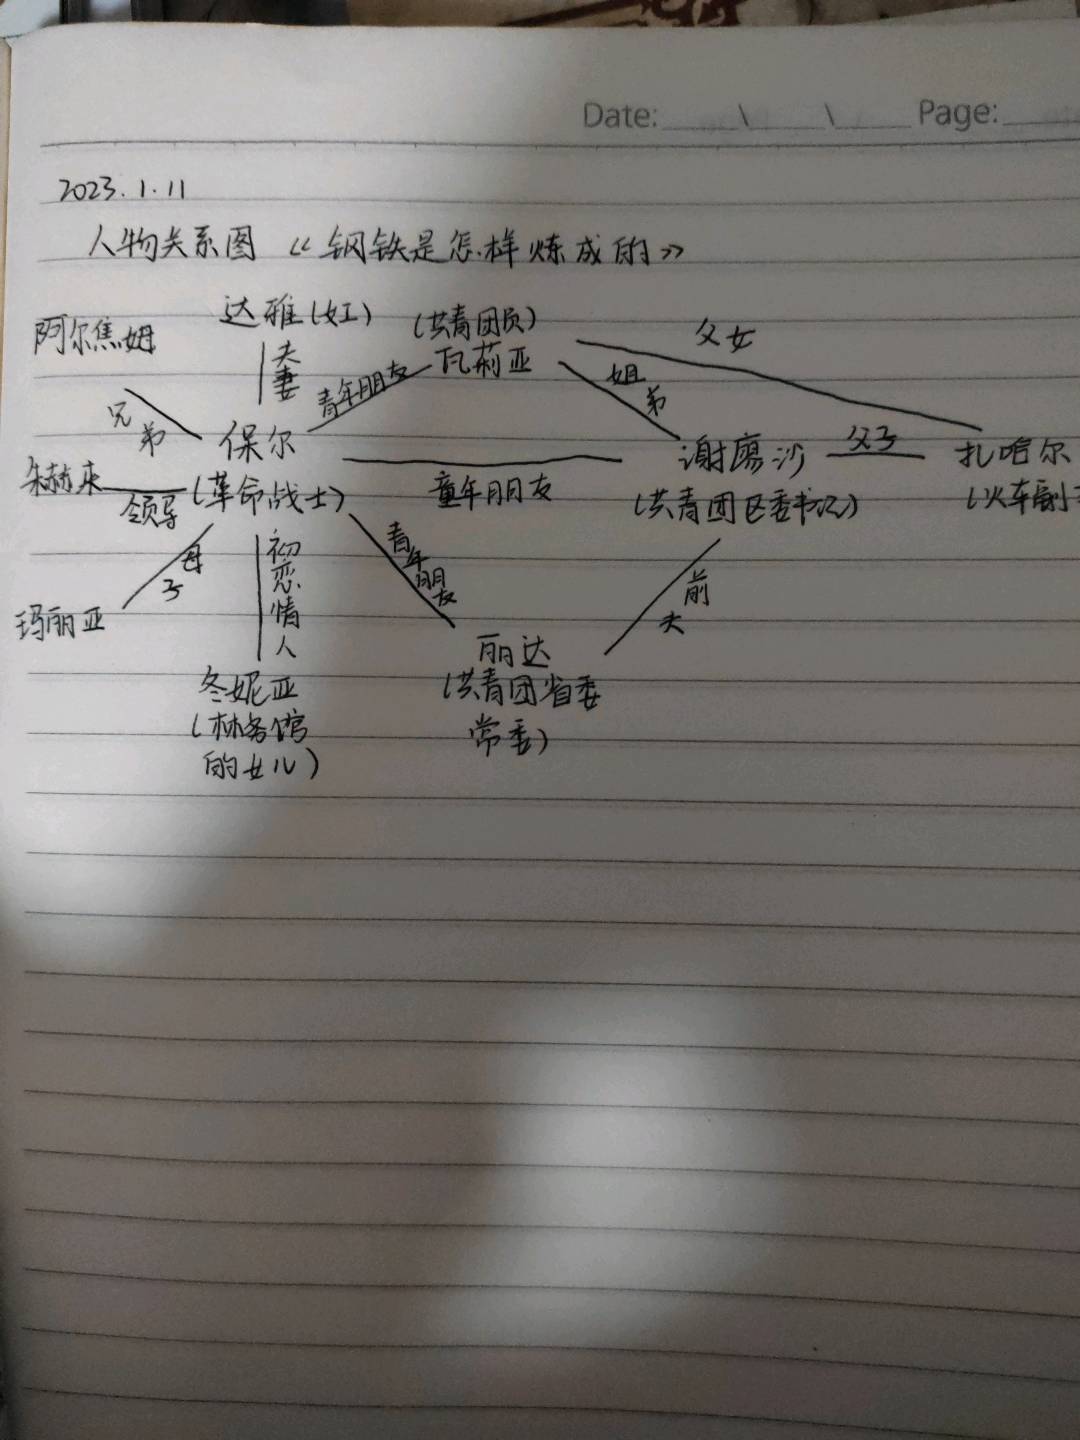 Date: \ \ Page:
2023.1.11
人物关系图 《钢铁是怎样炼成的》
阿尔焦姆 达雅(女工) (共青团员) 父女
夫妻 青年朋友 瓦莉亚 姐弟
兄弟 保尔 谢廖沙 父子 扎哈尔
朱赫来 领导 (革命战士) 童年朋友 (共青团区委书记) (火车副
母子 初恋情人 青年朋友 前夫
玛丽亚 丽达
冬妮亚 (共青团省委
(林务馆 常委)
的女儿)